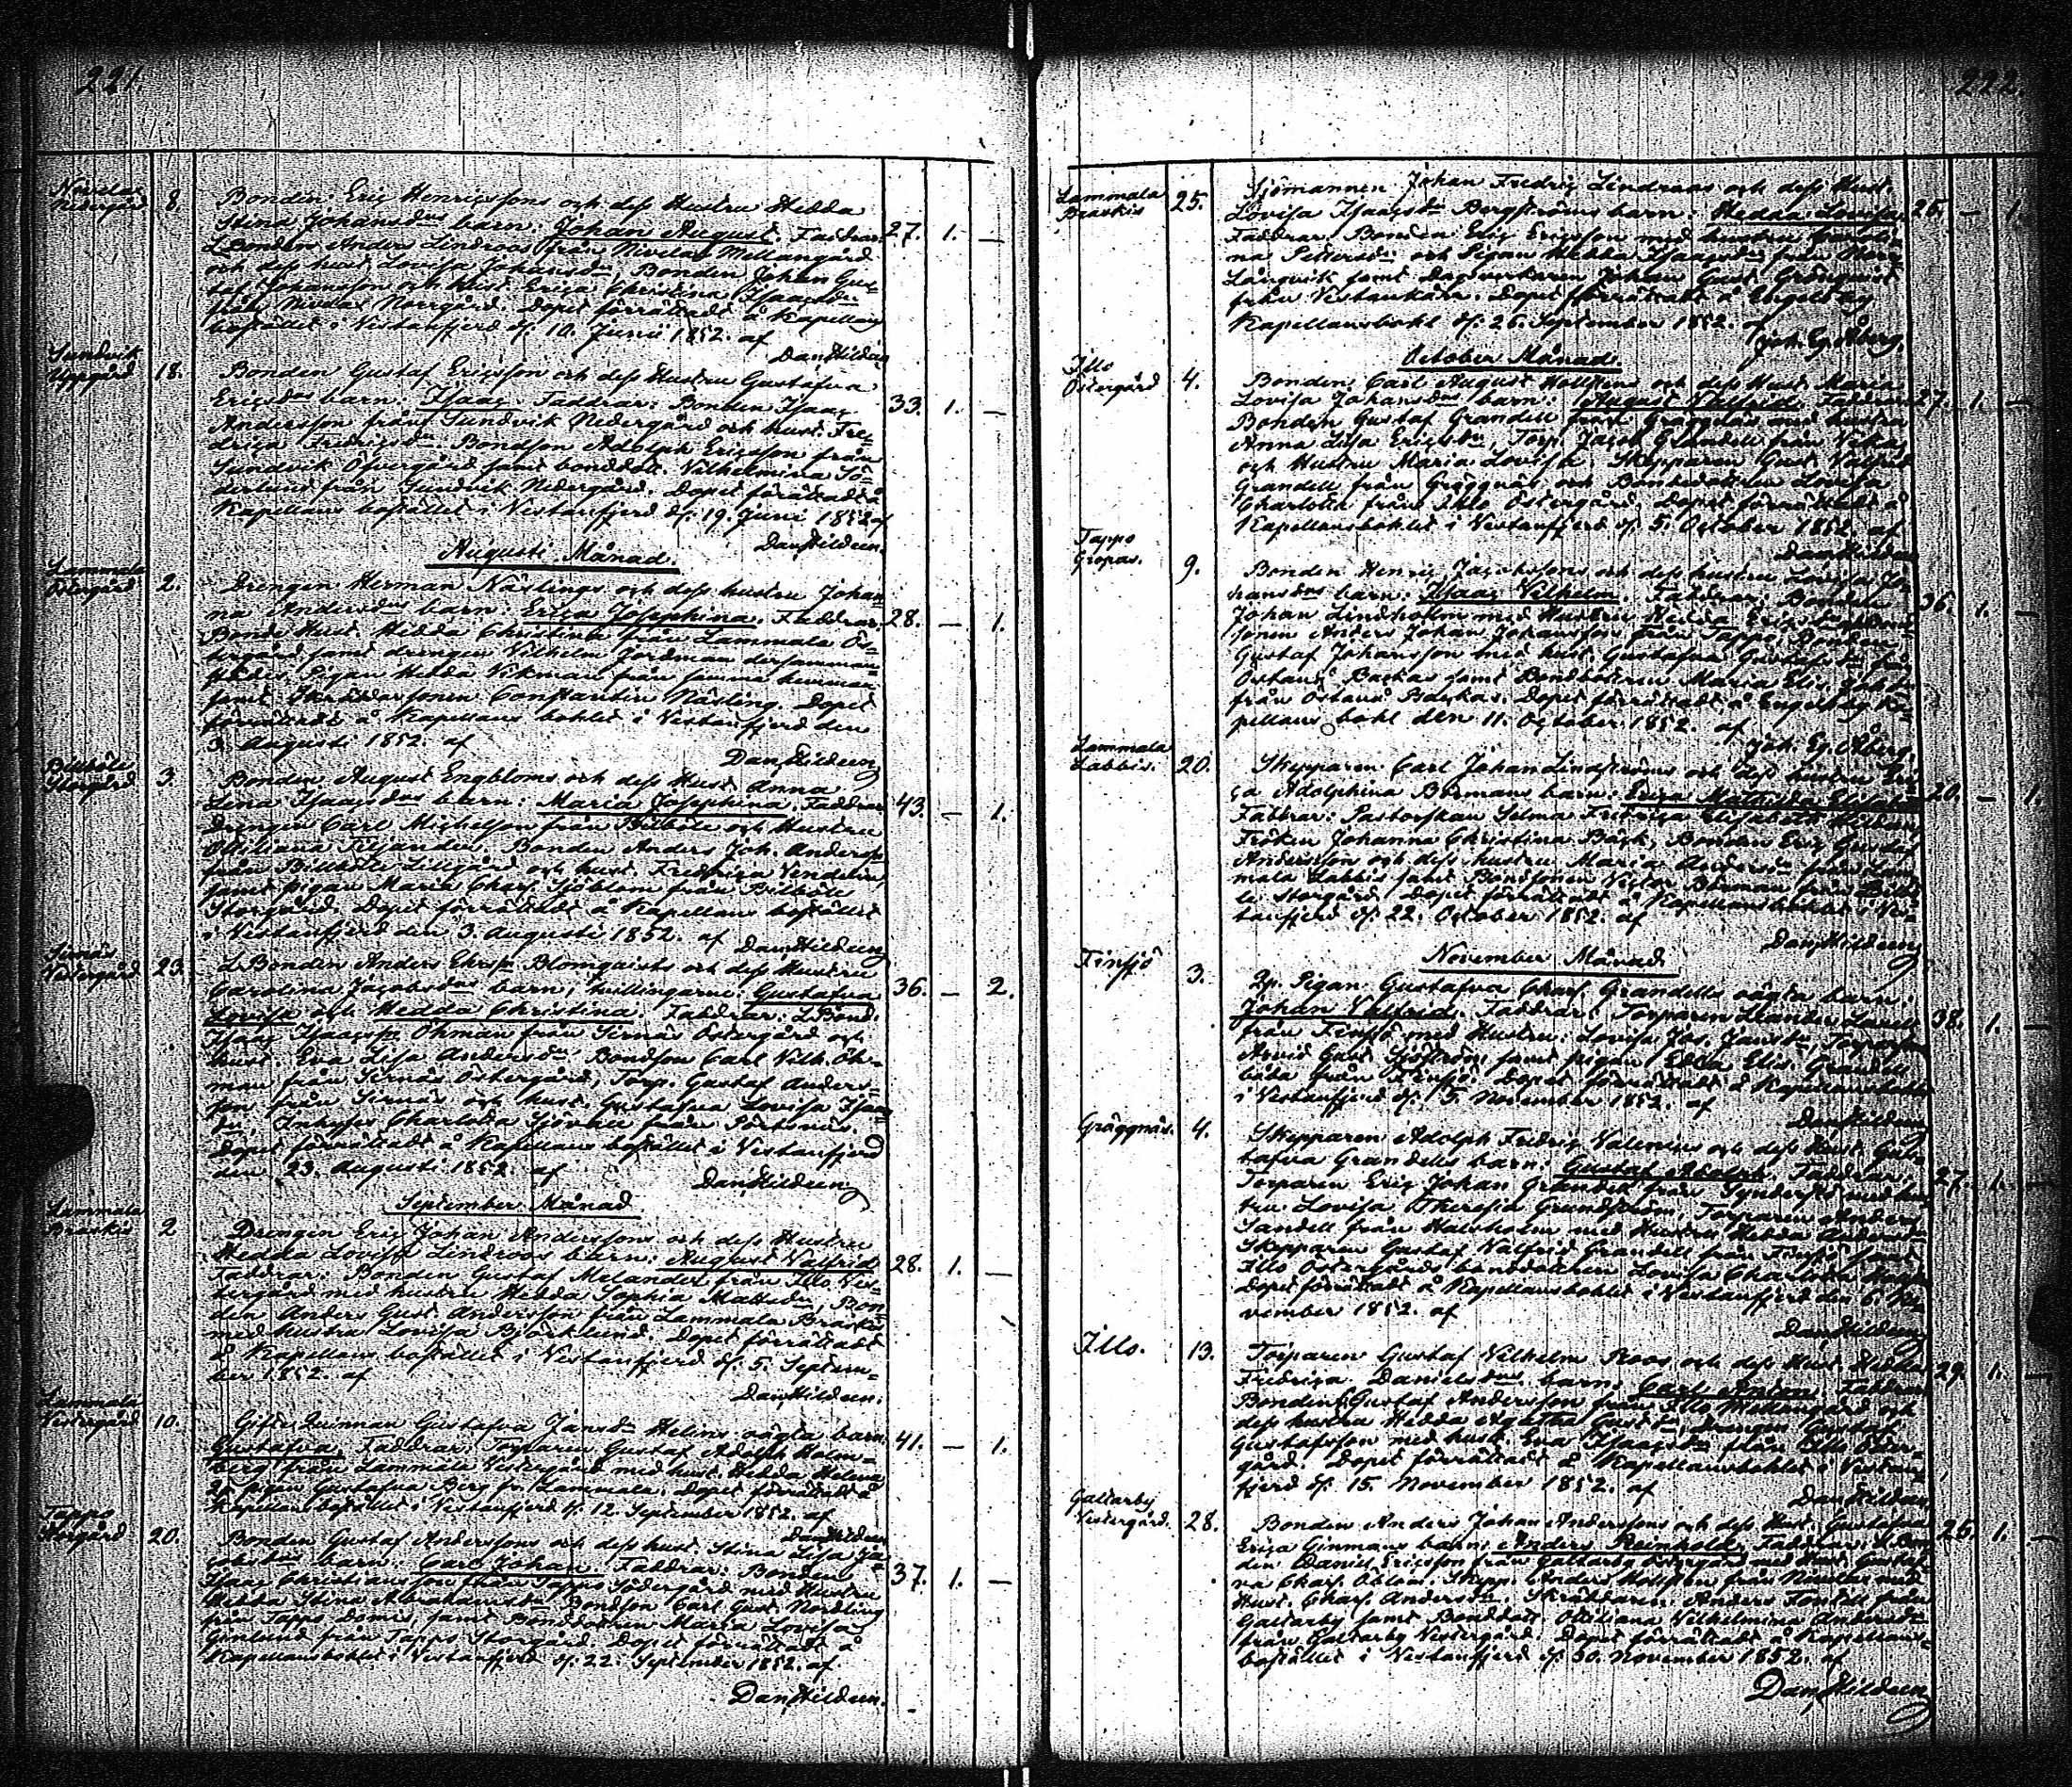 221.
Nivelax
Nedergård 8. Bonden Eric Henricssons och dess Hustru Hedda
Stina Johansdrs barn: Johan August. Faddrar: 27. 1. —
L. Bonden Anders Lindroos från Nivelax Mellangård
och dess hust. Lovisa Johansdr, Bonden Johan Gus-
taf Johansson och hust. Erica Christina Isaacsdr
från Nivelax Norrgård. Dopet förrättadt å Kapellans
bostället i Vestanfjerd d. 10. Junii 1852. af
Dan. Hildeen
Sundvik
Uppgård 18. Bonden Gustaf Ericsson och dess Hustru Gustafva
Ericsdrs barn: Isaac. Faddrar: Bonden Isaac 33. 1. —
Andersson från Sundvik Nedergård och hust. Fre-
drica Fredricsdr. Bondson Adolph Ericsson från
Sundvik Öfvergård samt bonddot. Vilhelmina Sö-
derlund från Sundvik Nedergård. Dopet förrättadt å
Kapellans bostället i Vestanfjerd d. 19. Juni 1852 af
Dan. Hildeen.
Augusti Månad.
Lammala
Östergård 2. Drengen Herman Näslings och dess hustru Johan-
na Andersdrs barn: Erica Josephina. Faddrar: 28. — 1.
Bonde Hust. Hedda Christina från Lammala Ös-
tergård samt drengen Vilhelm Jordman dersamman-
städes, Pigan Hedda Vikman från samma hemman
samt Skräddarsonen Constantin Näsling. Dopet
förrättadt å Kapellans bohlet i Vestanfjerd den
3. Augusti 1852. af
Dan. Hildeen
Billböle
Storgård 3. Bonden August Engbloms och dess Hust. Anna
Lena Isaacsdrs barn: Maria Josephina. Faddrar: 43. — 1.
Drengen Carl Michelsson från Billböle och Hustru
Ottiliana Filander, Bonden Anders Joh. Andersson
från Billböle Lillgård och hust. Fredrica Vendelin,
samt pigan Maria Charl. Sjöblom från Billböle
Storgård. Dopet förrättadt å Kapellans bostället
i Vestanfjerd den 3. Augusti 1852. af Dan. Hildeen
Sirnäs
Vestergård 23. L. Bonden Anders Christ. Blomqvists och dess Hustru
Carolina Jacobsdrs barn; tvillingarne: Gustafva 36. — 2.
Lovisa och Hedda Christina. Faddrar: L. Bond.
Isaac Isaacss. Öhman från Sirnäs Östergård och
hust. Eva Lisa Andersdr. Bondson Carl Vilh. Öh-
man från Sirnäs Östergård, Torp. Gustaf Anders-
son från Sirnäs och hust. Gustafva Lovisa Isaacs-
dr. Inhyses Charlotta Sjövall från Pörtsnäs.
Dopet förrättadt å Kapellans bostället i Vestanfjerd
den 23. Augusti 1852. af
Dan. Hildeen
September Månad
Lammala
Braskis 2 Drengen Eric Johan Anderssons och dess Hustru
Hedda Lovisa Lindroos barn: August Valfrid 28. 1. —
Faddrar: Bonden Gustaf Melander från Illo Ves-
tergård med hustru Hedda Sophia Mattsdr, Bon-
den Anders Gust. Andersson från Lammala Braskis
med hustru Lovisa Björklund. Dopet förrättadt
å Kapellans bostället i Vestanfjerd d. 5. Septem-
ber 1852. af
Dan. Hildeen.
Lammala
Vestergård 10. Gifte Qvinnan Gustafva Jansdr Helins oägta barn: 41. — 1.
Gustafva. Faddrar: Torparen Gustaf Adolph Holm-
berg från Lammala Vestergård med hust. Hedda Helena
Qp. pigan Gustafva Berg fr. Lammala. Dopet förrättadt å
Kapellans bostället i Vestanfjerd d. 12. September 1852. af
Dan. Hildeen
Tappo
Storgård 20. Bonden Gustaf Anderssons och dess hust. Stina Lisa Ja-
cobsdrs barn: Carl Johan. Faddrar: Bonden 37. 1. —
Isaac Christiansson från Tappo Södergård med Hustru
Hedda Stina Abrahamsdr. Bondson Carl Gust. Nordling
från Tappo Domis, samt Bonddottren Maria Lovisa
från Tappo Storgård. Dopet förrättadt å
Kapellansbohlet i Vestanfjerd d. 22. September 1852. af
Dan. Hildeen.
222.
Lammala
Braskis 25. Sjömannen Johan Fredric Lindroos och dess Hust.
Lovisa Isaacsdr Bergströms barn: Hedda Lovisa. 25. — 1.
Faddrar: Bonden Eric Ericsson med hustru
na Pettersdr och Pigan Hedda Isaacsdr från Norr-
Långvik samt Dagsverkaren Johan Gust. Grönqvist
från Vestankärr. Dopet förrättadt å Engelsby
Kapellansbohl d. 26. September 1852. af
Joh. Eg. Åberg.
October Månad
Illo
Östergård 4. Bonden Carl August Holstens och dess Hust. Maria
Lovisa Johansdrs barn: August Valfrid. Faddrar: 27. 1. —
Bonden Gustaf Grandell från Gräggnäs med hustru
Anna Lisa Ericsdr, Torp. Jacob Grandell från
och Hustru Maria Lovisa, Skepparen Gust. Valfrid
Grandell från Gräggnäs och Bonddottren Lovisa
Charlotta från Illo Östergård. Dopet förrättadt å
Kapellansbohlet i Vestanfjerd d. 5. October 1852. af
Dan. Hildeen
Tappo
Gropas. 9. Bonden Henric Jacobssons och dess hustru Lovisa Jo-
hansdrs barn: Isaac Vilhelm. Faddrar: Bonden 36. 1. —
Johan Lindholm med Hustru Hedda Ericsdr
sonen Anders Johan Johansson från Tappo, Bonden
Gustaf Johansson med hust. Gustafva Gustafsdr från
Östanå Backas samt Bonddottren Maria Elis.
från Östanå Backas. Dopet förrättadt å Engelsby Ka-
pellans bohl den 11. October 1852. af
Joh. Eg. Åberg.
Lammala
Labbis. 20. Skepparen Carl Johan Lindströms och dess hustru Eri-
ca Adolphina Börmans barn: Erica Mathilda Elisab. 20. — 1.
Faddrar: Pastorskan Selma Fredrica Elisabeth Hildeen
Fröken Johanna Christina Bäck, Bonden Eric Gustaf
Andersson och dess hustru Maria Andersdr från Lam-
mala Labbis samt Bondsonen Victor Börman från
Storgård. Dopet förrättadt å Kapellansbohlet i Ves-
tanfjerd d. 22. October 1852. af
Dan. Hildeen
November Månad
Finsjö 3. Qp. Pigan Gustafva Charl. Grandells oägta barn:
Johan Valfrid. Faddrar: Torparen Leander 38. 1. —
från Finsjö med Hustru Lovisa Jos. Jansdr,
Arvid Gust. Sjöström samt pigan Edda Elis. Grandell
båda från Finsjö. Dopet förrättadt å Kapellansbohlet
i Vestanfjerd d. 5. November 1852. af
Dan. Hildeen
Gräggnäs. 4. Skepparen Adolph Fredric Valenius och dess Hust. Gus-
tafva Grandells barn: Gustaf Adolph. Faddrar: 27. 1. —
Torparen Eric Johan Grandell från med hus-
tru Lovisa Theresia Grundström, Torparen Anders
Sandell från Halsholm med Hustru Hedda Andersdr
Skepparen Gustaf Valfrid Grandell från Finsjö samt
Illo Östergårds bonddottren Lovisa Charlotta
Dopet förrättadt å Kapellansbohlet i Vestanfjerd den 6. No-
vember 1852. af
Dan. Hildeen
Illo. 13. Torparen Gustaf Vilhelm Roos och dess Hust. Hedda
Fredrica Danielsdrs barn: Carl Anton. Faddrar: 29. 1. —
Bonden Gustaf Andersson från Illo Mellangård och
dess hustru Hedda Agatha Gustdr, drengen Gustaf
Gustafsson med hust. Eva Isaacsdr från Illo Öster-
gård. Dopet förrättadt å Kapellansbohlet i Vestan-
fjerd d. 15. November 1852. af
Dan. Hildeen
Galtarby
Vestergård. 28. Bonden Anders Johan Anderssons och dess Hust. Gustafva
Erica Ginmans barn: Anders Reinhold. Faddrar: L. Bon- 25. 1. —
den Daniel Ericsson från Galtarby Östergård med Hust. Gustaf-
va Charl. Öblom. Skepp. Anders från Nivelax med
Hust. Charl. Andersdr. Skräddaren Anders Fondell från
Galtarby samt Bonddott. Ottiliana Vilhelmina Andersdr
från Galtarby Vestergård. Dopet förrättadt å Kapellans-
bostället i Vestanfjerd d. 30. November 1852. af
Dan. Hildeen